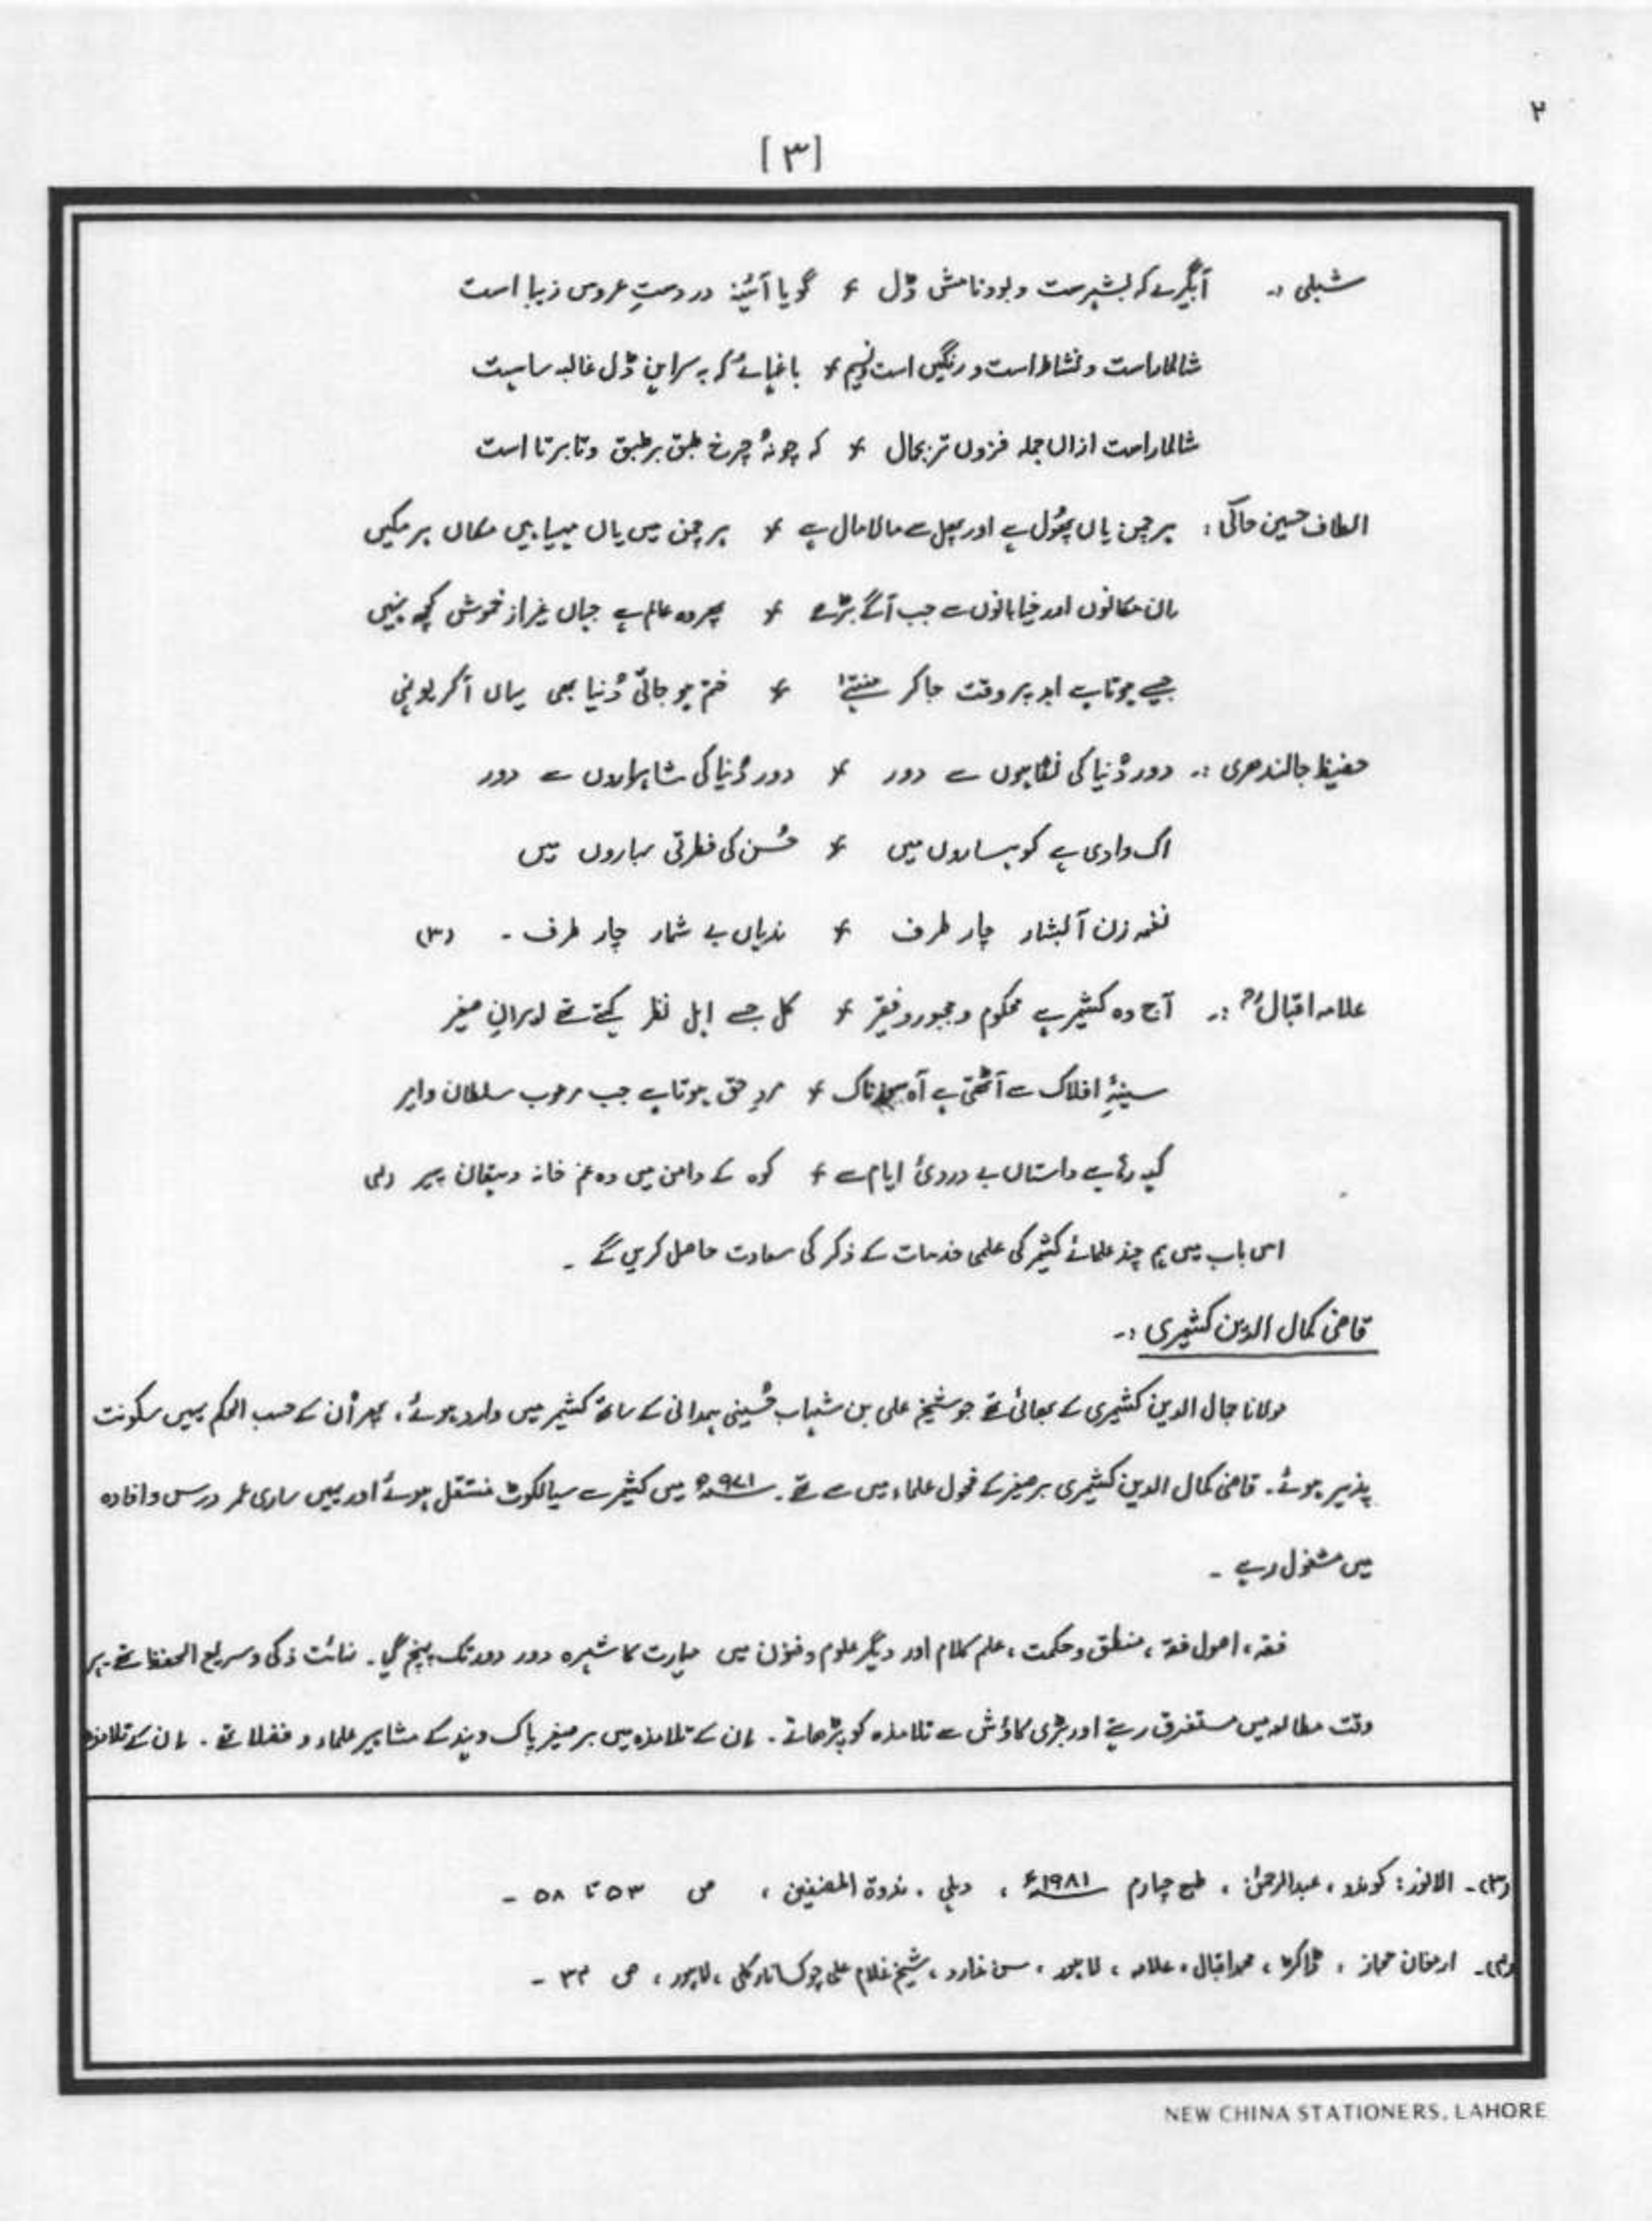 ۲
[۳]
شبلی :۔ آبگیرے کہ بشہرست و بود نامش ڈل ؏ گویا آئینہ در دستِ عروس زیبا است
شالامار است و نشاط است و رنگیں است نسیم ؏ باغہائے کہ بہ سر این ڈل غالیہ سا ہست
شالامار است ازاں جملہ فزوں تر بجمال ؏ کہ چو نُہ چرخ طبق بر طبق و تا بر تا است
الطاف حسین حالی : ہر چمن یاں پھُول ہے اور پھل سے مالا مال ہے ؏ ہر چمن میں یاں مہیا ہیں مکاں ہر مکیں
اِن مکانوں اور خیابانوں سے جب آگے بڑھے ؏ پھر وہ عالم ہے جہاں غیر از خموشی کچھ نہیں
جیسے ہوتا ہے ابد پر وقت جا کر منتہٰی ؏ ختم ہو جاتی دُنیا بھی یہاں آکر یونہی
حفیظ جالندھری :۔ دور دُنیا کی نگاہوں سے دور ؏ دور دُنیا کی شاہراہوں سے دور
اک وادی ہے کوہساروں میں ؏ حُسن کی فطرتی بہاروں میں
نغمہ زن آبشار چار طرف ؏ ندیاں بے شمار چار طرف ۔ (۳)
علامہ اقبالؒ :۔ آج وہ کشمیر ہے محکوم و مجبور و فقیر ؏ کل جسے اہل نظر کہتے تھے ایرانِ صغیر
سینۂِ افلاک سے اُٹھتی ہے آہ سوزناک ؏ مردِ حق ہوتا ہے جب مرعوب سلطان و امیر
کہہ رہا ہے داستاں بے دردیٔ ایام سے ؏ کوہ کے دامن میں وہ غم خانہ دہقان پیر (۴)
اس باب میں ہم چند علمائے کشمیر کی علمی خدمات کے ذکر کی سعادت حاصل کریں گے ۔
قاضی کمال الدین کشمیری :۔
مولانا جمال الدین کشمیری کے بھائی تھے جو شیخ علی بن شہاب حُسینی ہمدانی کے ساتھ کشمیر میں وارد ہوئے، پھر اُن کے حسب الحکم یہیں سکونت
پذیر ہوئے۔ قاضی کمال الدین کشمیری برصغیر کے فحول علماء میں سے تھے۔ ۹۷۱ھ میں کشمیر سے سیالکوٹ منتقل ہوئے اور یہیں ساری عمر درس و افادہ
میں مشغول رہے ۔
فقہ، اصول فقہ، منطق و حکمت، علم کلام اور دیگر علوم و فنون میں مہارت کا شہرہ دور دور تک پہنچ گیا۔ نہائت ذکی و سریع الحفظ تھے۔ ہر
وقت مطالعہ میں مستغرق رہتے اور بڑی کاوش سے تلامذہ کو پڑھاتے۔ اِن کے تلامذہ میں برصغیر پاک و ہند کے مشاہیر علماء و فضلا تھے۔ اِن کے تلامذہ
(۳)۔ الانور: کوندو، عبدالرحمٰن، طبع چہارم ۱۹۸۱ء، دہلی۔ ندوۃ المصنفین، ص ۵۳ تا ۵۸ ۔
(۴)۔ ارمغان حجاز، ڈاکٹر، محمد اقبال، علامہ، لاہور، سن ندارد، شیخ غلام علی چوک انارکلی، لاہور، ص ۳۴ ۔
NEW CHINA STATIONERS, LAHORE